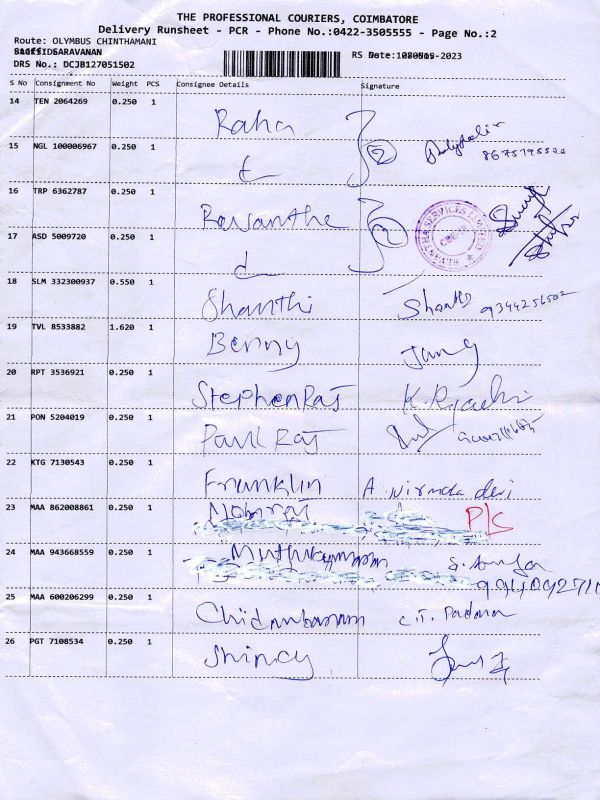 THE PROFESSIONAL COURIERS, COIMBATORE
Delivery Runsheet - PCR - Phone No.:0422-3505555 - Page No.:2
Route: OLYMBUS CHINTHAMANI
SARAVANAN
DRS No.: DCJB127051502
RS No
-2023
S No Consignment No Weight PCS Consignee Details Signature
14 TEN 2064269 0.250 1 Raha
15 NGL 100006967 0.250 1
2
16 TRP 6362787 0.250 1 Revanthe
17 ASD 5009720 0.250 1
2
18 SLM 332300937 0.550 1 Shanthi 9344256502
19 TVL 8533882 1.620 1 Benny Jany
20 RPT 3536921 0.250 1 StephenRaj
21 PON 5204019 0.250 1 Paul Raj
22 KTG 7130543 0.250 1 Franklin A. Nirmala devi
23 MAA 862008861 0.250 1 P/C
24 MAA 943668559 0.250 1 Muthukumaran
25 MAA 600206299 0.250 1 Chidambaram
26 PGT 7108534 0.250 1 Shincy